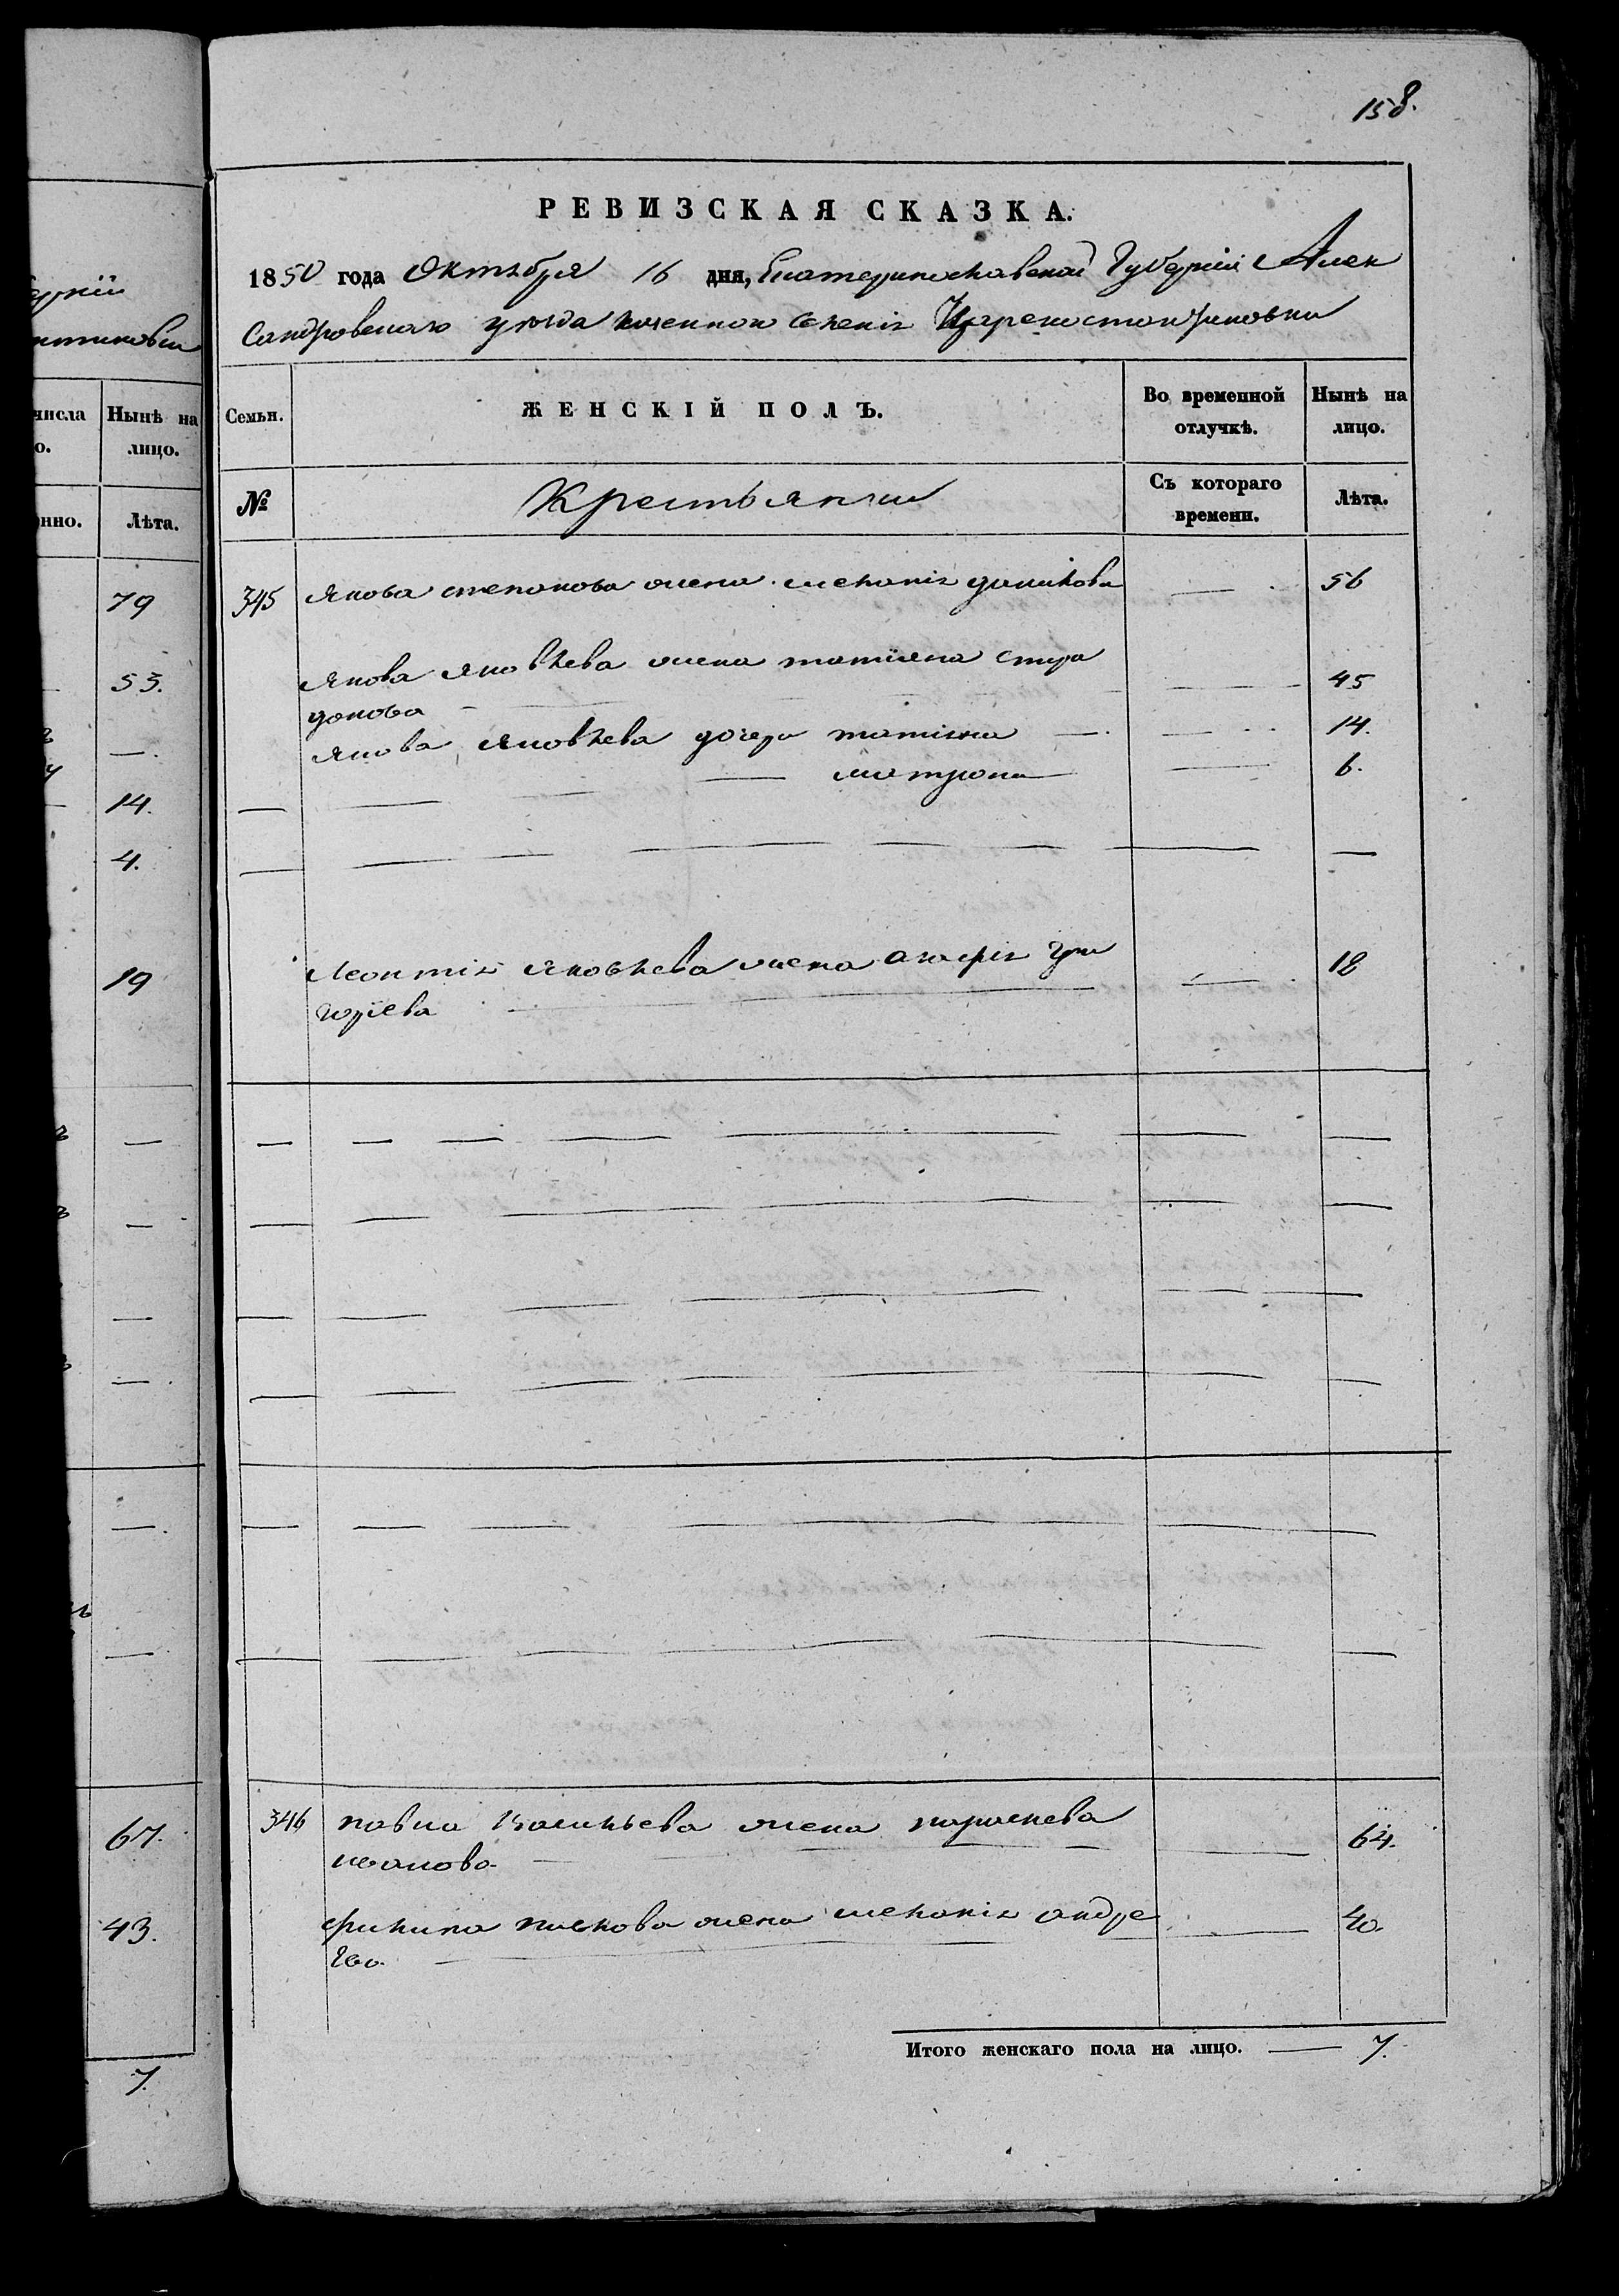 158.
РЕВИЗСКАЯ СКАЗКА.
1850 года Октября 16 дня, Екатеринославской Губернии Алек
сандровскаго уезда казенного селения Цареконстантиновки
Семьи.
ЖЕНСКІЙ ПОЛЪ.
Во временной отлучкѣ.
Нынѣ на лицо.
№
Крестьянки
Съ котораго времени.
Лѣта.
345 Якова степанова жена меланія данилова — 56
Якова Яковлева жена татияна спири
донова — 45
Якова Яковлева дочери татіяна — 14.
— матрона — 6.
Леонтія Яковлева жена агафія гри
горіева — 18
346 павла Васильева жена параскева
иванова — 64.
филипа павлова жена меланія андре
ева — 40.
Итого женскаго пола на лицо. — 7.
ерніи
нтиновки
числа
о.
Нынѣ на лицо.
нно.
Лѣта.
79
53.
—
14.
4.
19
—
—
—
—
—
—
67.
43.
7.